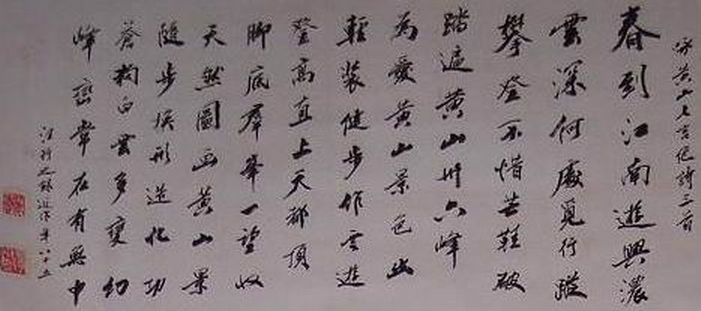 咏黄山七言絕詩三首
春到江南遊興濃
雲深何處覓行蹤
攀登不惜芒鞋破
踏遍黄山卅六峰
为愛黄山景色幽
輕裝健步作雲遊
登高直上天都頂
脚底羣峯一望收
天然圖画黄山景
随步换形造化功
蒼狗白雲多變幻
峰巒常在有無中